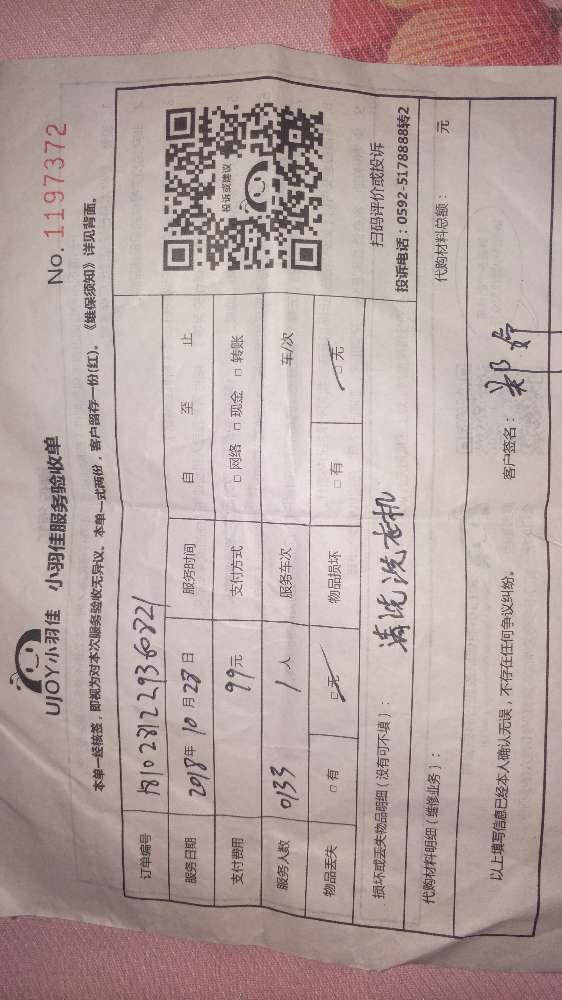 UJOY小羽佳 小羽佳服务验收单
No. 1197372
本单一经核签，即视为对本次服务验收无异议。本单一式两份，客户留存一份(红)。《维保须知》详见背面。
订单编号 1810281229360221
服务日期 2018年10月28日 服务时间 自 至 止
支付费用 99元 支付方式 □网络 □现金 □转账
服务人数 0133 1人 服务车次 车/次
物品丢失 □有 □无 物品损坏 □有 □无
投诉或建议
扫码评价或投诉
投诉电话：0592-5178888转2
损坏或丢失物品明细（没有可不填）： 清洗洗衣机
代购材料明细（维修业务）： 代购材料总额： 元
以上填写信息已经本人确认无误，不存在任何争议纠纷。 客户签名： 郑婷